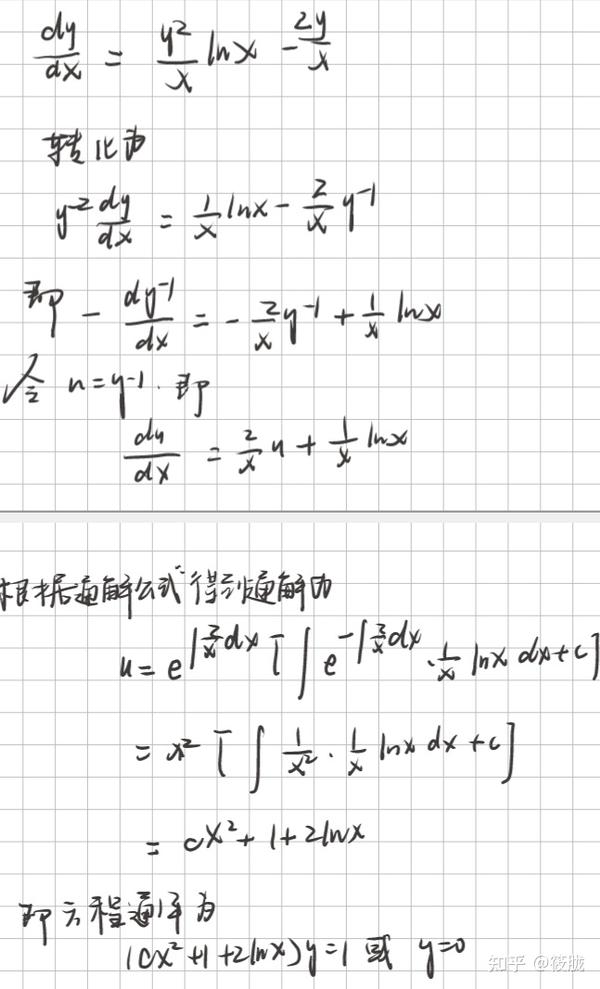 dy/dx = y²/x lnx - 2y/x
转化为
y⁻² dy/dx = 1/x lnx - 2/x y⁻¹
即 - dy⁻¹/dx = - 2/x y⁻¹ + 1/x lnx
令 u=y⁻¹. 即
du/dx = 2/x u + 1/x lnx
根据通解公式得到通解为
u = e^∫2/x dx [∫ e^-∫2/x dx · 1/x lnx dx + c]
= x² [∫ 1/x² · 1/x lnx dx + c]
= cx² + 1 + 2lnx
即方程通解为
(cx² + 1 + 2lnx)y = 1 或 y=0
知乎 @筱胧